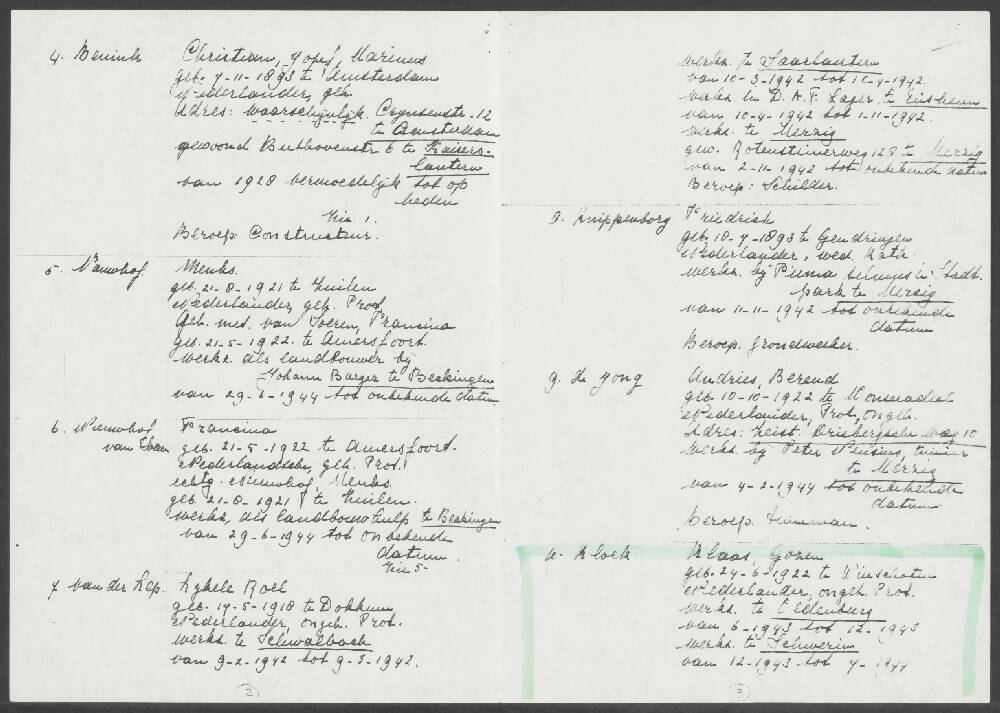 4. Benink Christiaan, Josef, Marinus
geb. 7-11-1893 te Amsterdam
Nederlander, geh.
Adres: waarschijnlijk. Crynsenstr. 12
te Amsterdam
gewoond Buthovenstr 6 te Kaisers-
lautern
van 1928 vermoedelijk tot op
heden
Zie 1.
Beroep. Constructeur.
5. Nieuwhof. Menks.
geb. 21-8-1921 te Zuilen
Nederlander, geh. Prot.
Geh. met. van Soeren, Francina
geb. 21-5-1922. te Amersfoort.
werkz. als landbouwer bij
Johann Burger te Beckingen
van 29-6-1944 tot onbekende datum
6. Nieuwhof Francina
van
geb. 21-5-1922 te Amersfoort.
Nederlandsche, geh. Prot.
echtg. Nieuwhof, Menks.
geb. 21-8-1921 te Zuilen.
werkz, als landbouwhulp te Beckingen
van 29-6-1944 tot onbekende
datum.
Zie 5-
7 van der Lep. Lykele Roel
geb. 14-5-1918 te Dokkum
Nederlander, ongeh. Prot.
werkz. te Schwalbach
van 9-2-1942 tot 9-3-1942.
2
werkz. te Saarlautern
van 10-3-1942 tot 10-4-1942.
werkz. in D.A.F. Lager, te Ensheim
van 10-4-1942 tot 1-11-1942.
werkz. te Merzig
gew. Rotensteinerweg 128 te Merzig
van 2-11-1942 tot onbekende datum
Beroep: Schilder.
8. Knippenborg Friedrich
geb. 18-7-1893 te Gendringen
Nederlander, wed. Kath.
werkz. bij Firma in Stadt.
park te Merzig
van 11-11-1942 tot onbekende
datum
Beroep. Grondwerker.
9. de Jong Andries, Berend
geb. 10-10-1922 te Wonseradeel
Nederlander, Prot, ongeh.
Adres: Zeist. Driebergsche weg 10
werkz. bij Peter tuinier
te Merzig
van 4-2-1944 tot onbekende
datum.
beroep. Tuinman.
10. Kloek Klaas, Gozen
geb. 24-6-1922 te Winschoten
Nederlander, ongeh. Prot.
werkz. te Oldenburg
van 6-1943 tot 12-1943
werkz. te Schwerin
van 12-1943 tot 4-1944
3